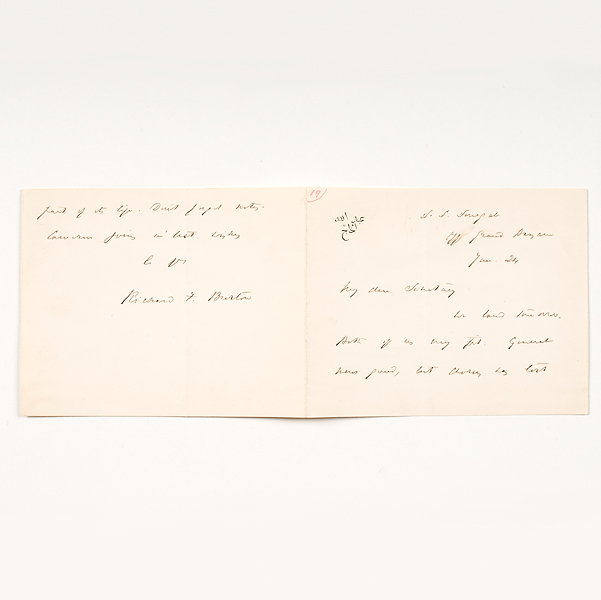 19
S. S. Senegal
off Grand Bassam
Jan. 24
My dear Secretary
We land tomorrow.
Both of us very fit. General
news good, but has lost
part of its life. Don't forget notes.
Cameron joins in best wishes
to you
Richard F Burton